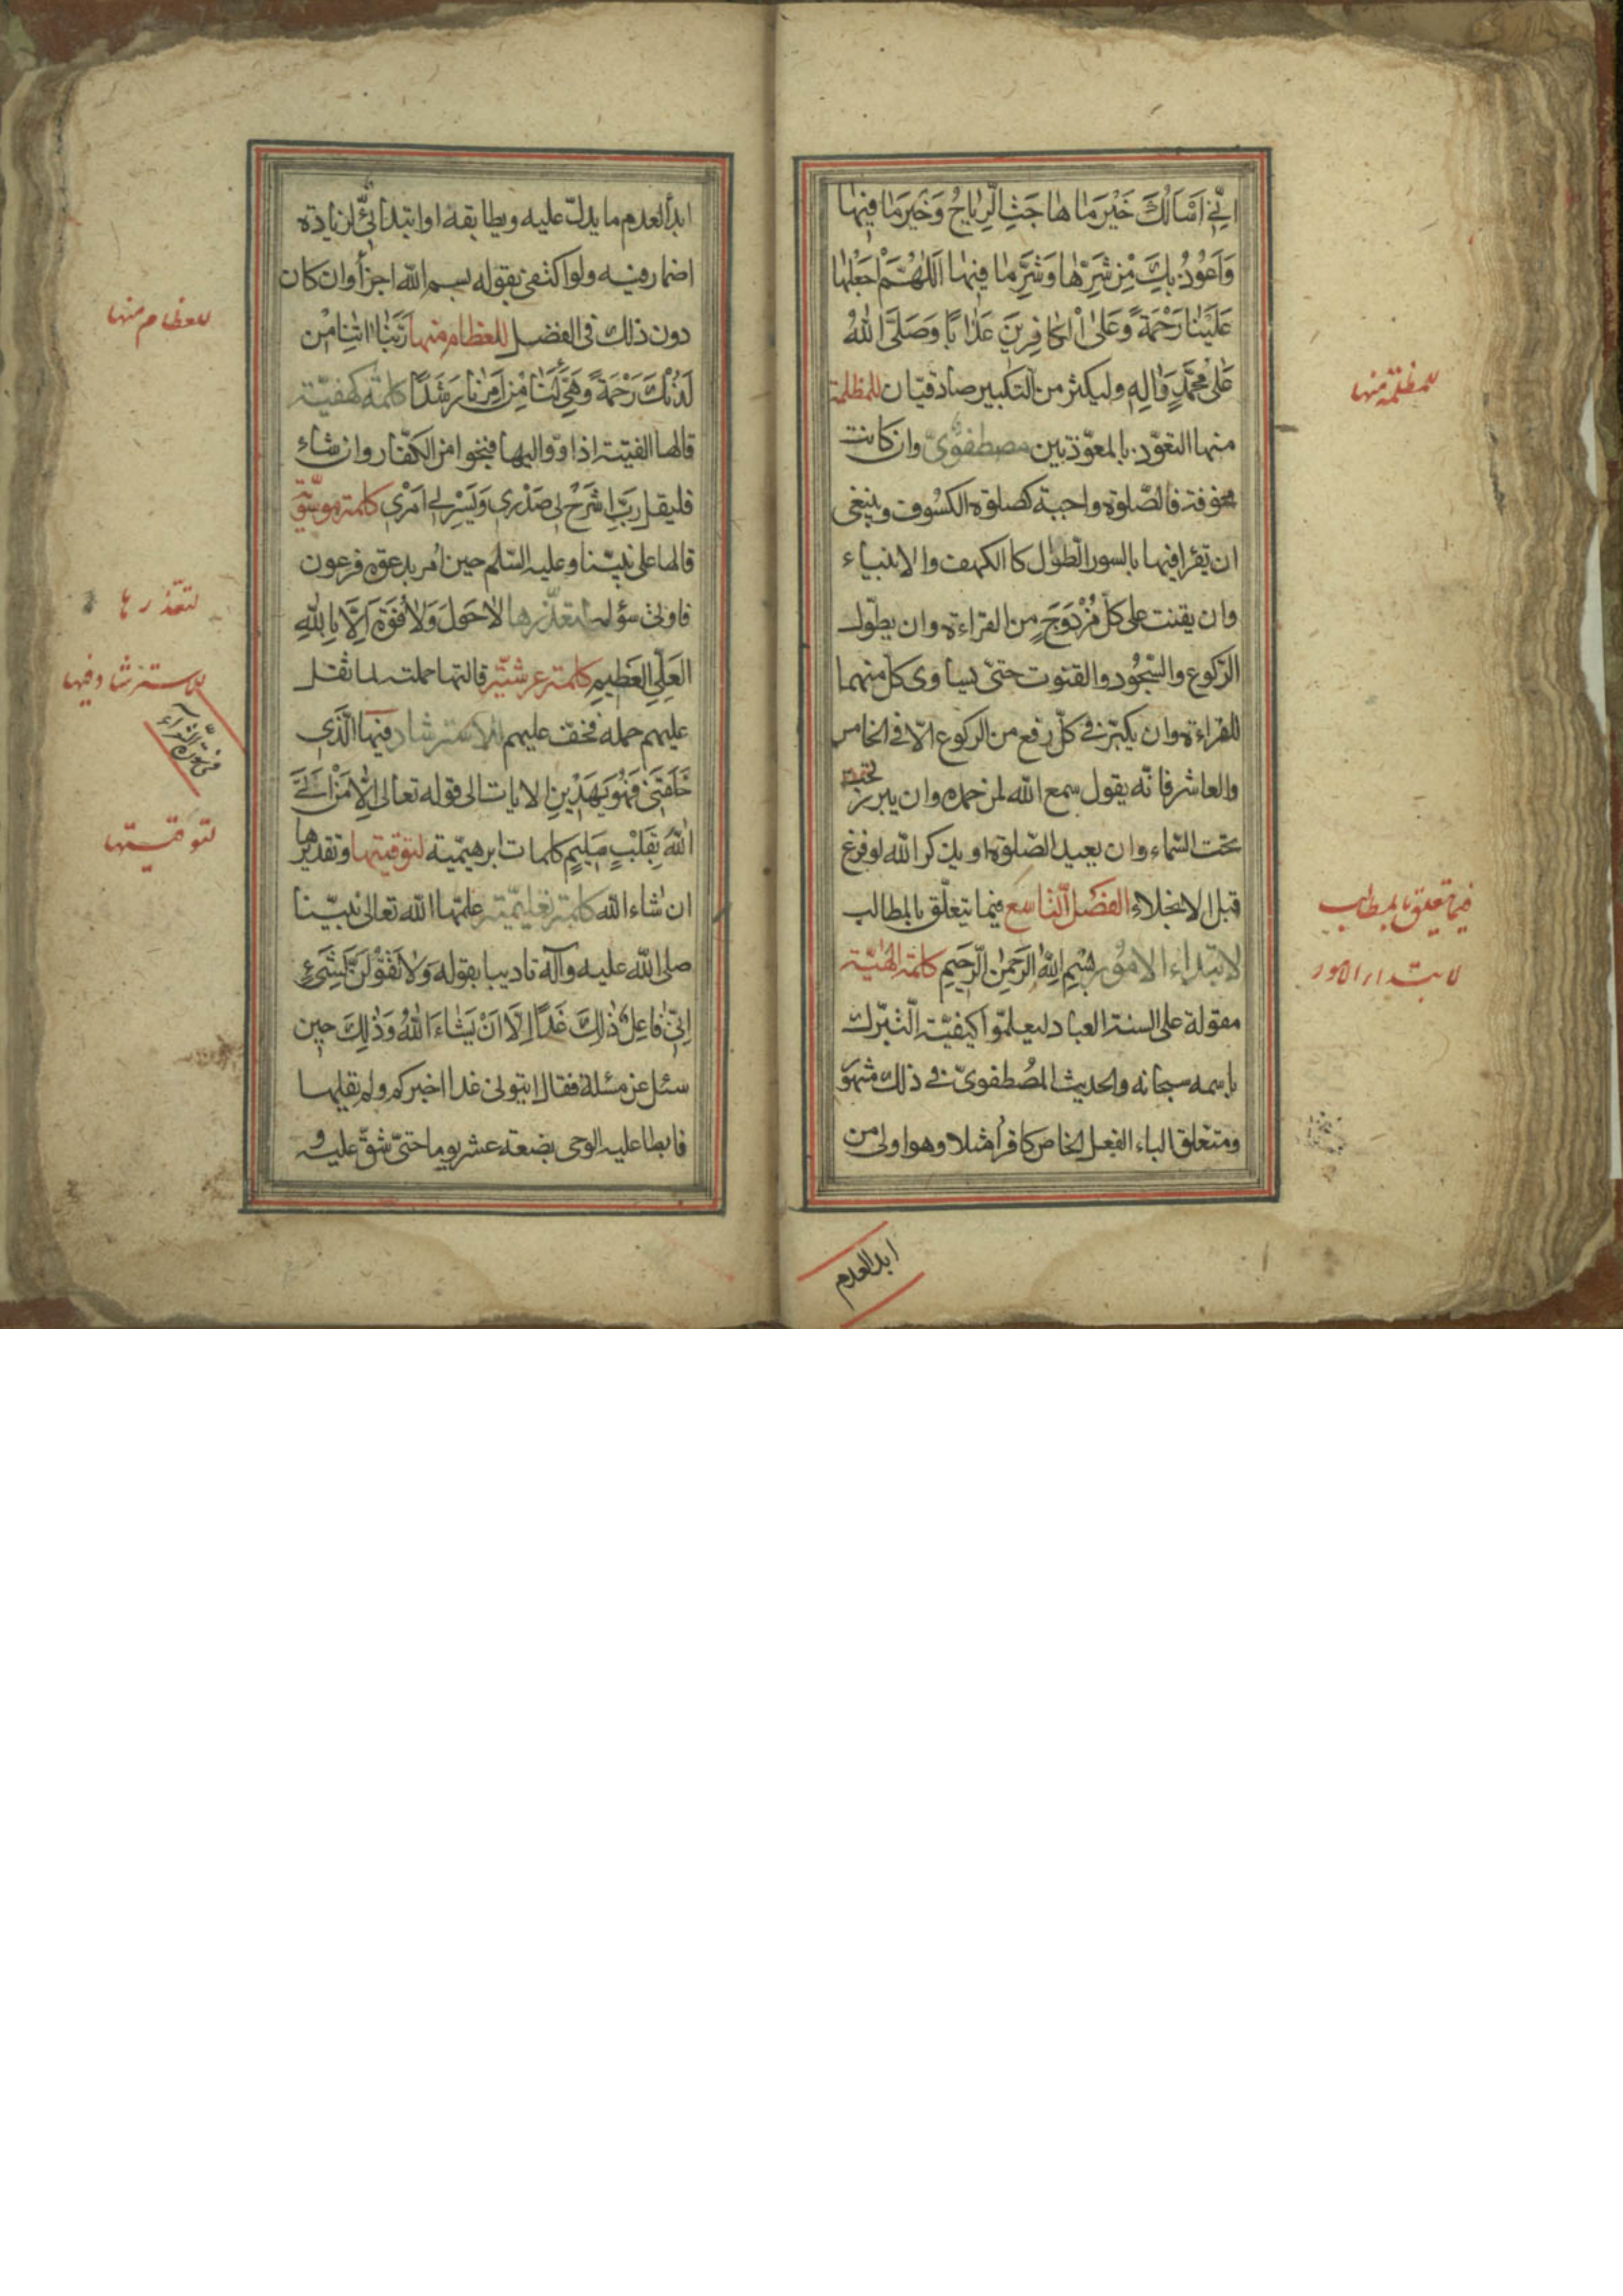 اِنّي اَسْاَلُكَ خَيْرَ مٰا هٰاجَتْ الرِّيٰاحُ وَخَيْرَ مٰا فِيهٰا
وَاَعُوذُ بِكَ مِنْ شَرِّهٰا وَشَرِّ مٰا فِيهٰا اَللّٰهُمَّ اجْعَلْهٰا
عَلَيْنٰا رَحْمَةً وَعَلَى الْكٰافِرِينَ عَذٰابًا وَصَلَّى اللّٰهُ
عَلٰى مُحَمَّدٍ وَاٰلِهِ وليكثر من التكبير صادقيّان للمظلمة
منها التعوّذ بالمعوّذتين مصطفويّ وان كانت
مخوفة فالصّلوة واجبة كصلوة الكسوف وينبغى
ان يقرا فيها بالسور الطوال كالكهف والانبياء
وان يقنت على كلّ مُزْدَوَجٍ من القراءة وان يطوّل
الرّكوع والسّجود والقنوت حتى يساوى كلّ منهما
للقراءة وان يكبّر فى كلّ رفع من الركوع الّا فى الخامس
والعاشر فانّه يقول سمع الله لمن حمده وان يبرز
تحت السّماء وان يعيد الصّلوة او يذكر الله لو فرغ
قبل الانجلاء الفصل التّاسع فيما يتعلّق بالمطالب
لابتداء الامور بِسْمِ اللهِ الرَّحْمٰنِ الرَّحِيمِ كلمة الٰهيّة
مقولة على السنة العباد ليعلموا كيفيّة التّبرّك
باسمه سبحانه والحديث المصطفويّ فى ذلك مشهور
ومتعلق الباء الفعل الخاص كاقرأ مثلا وهو اولى من
للمظلمة منها
فيما يتعلق بالمطالب
لابتداء الامور
ابدا لعدم
ابدأ لعدم ما يدلّ عليه ويطابقه او ابتدائى لزيادة
اضمار فيه ولو اكتفى بقوله بسم الله اجزأ وان كان
دون ذلك فى الفضل للعظام منها رَبَّنٰا اٰتِنٰا مِنْ
لَدُنْكَ رَحْمَةً وَهَيِّئْ لَنٰا مِنْ اَمْرِنٰا رَشَدًا كلمة كهفيّة
قالها الفتية اذ اووا اليها فنجوا من الكفّار وان شاء
فليقل رَبِّ اشْرَحْ لِى صَدْرِى وَيَسِّرْ لِى اَمْرِى كلمة موسويّة
قالها على نبيّنا وعليه السّلم حين اُمر بدعوة فرعون
فاوتى سؤله لتعذّرها لاٰ حَوْلَ وَلاٰ قُوَّةَ اِلّاٰ بِاللهِ
العَلِيِّ العَظِيمِ كلمة عرشيّة قالتها حملته لما ثقل
عليهم حمله فخفّ عليهم للاسترشاد فيها الَّذِى
خَلَقَنِى فَهُوَ يَهْدِينِ الايات الى قوله تعالى اِلّاٰ مَنْ اَتَى
اللهَ بِقَلْبٍ سَلِيمٍ كلمات ابرهيميّة لتوقيتها وتقديرها
ان شاء الله كلمة تعليميّة علّمها الله تعالى نبيّنا
صلى الله عليه وآله تاديبا بقوله وَلاٰ تَقُولَنَّ لِشَىْءٍ
اِنِّى فٰاعِلٌ ذٰلِكَ غَدًا اِلّاٰ اَنْ يَشٰاءَ اللهُ وَذٰلِكَ حين
سئل عن مسئلة فقال ايتونى غدا اخبركم ولم يقلها
فابطا عليه الوحى بضعة عشر يوما حتى شقّ عليه و
للعظام منها
لتعذرها
للاسترشاد فيها
فى سورة الشعراء
لتوقيتها